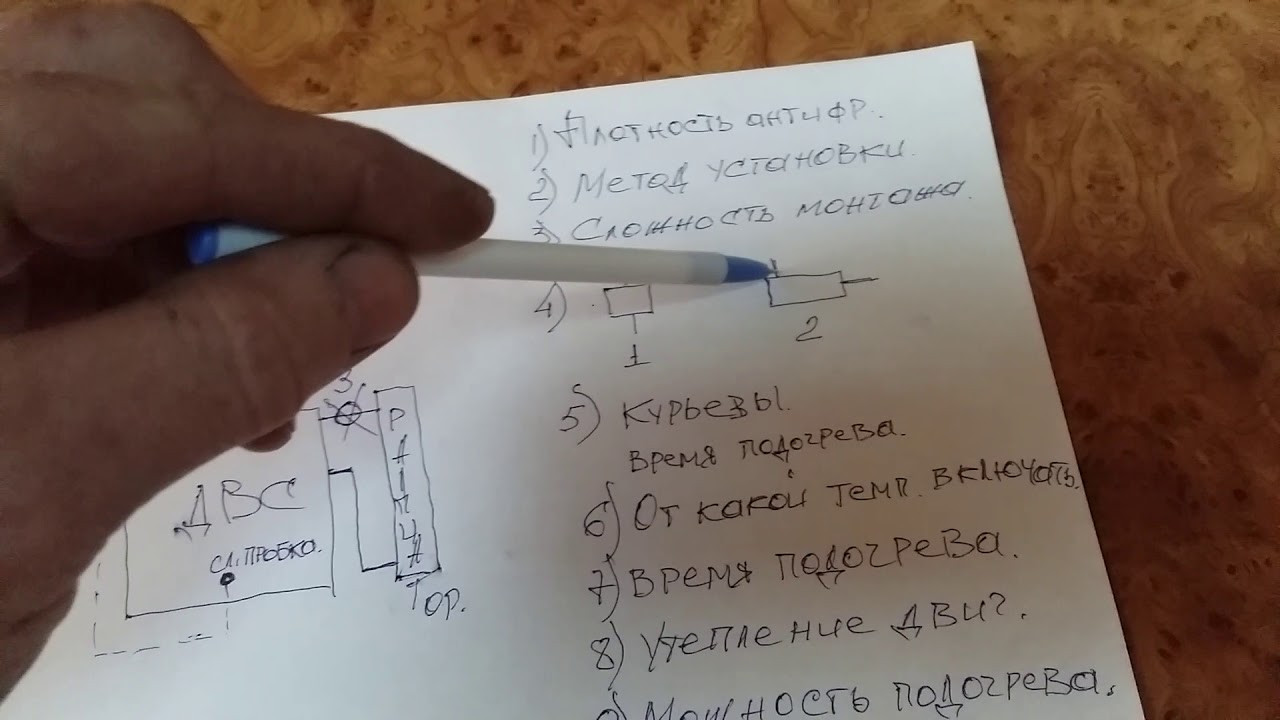 1) Плотность антифр.
2) Метод установки.
3) Сложность монтажа.
4)
1
2
5) Курьезы.
Время подогрева.
6) От какой темп. включать.
7) Время подогрева.
8) Утепление двиг.
9) Мощность подогрева.
3
ДВС
сл. пробка.
Тор.